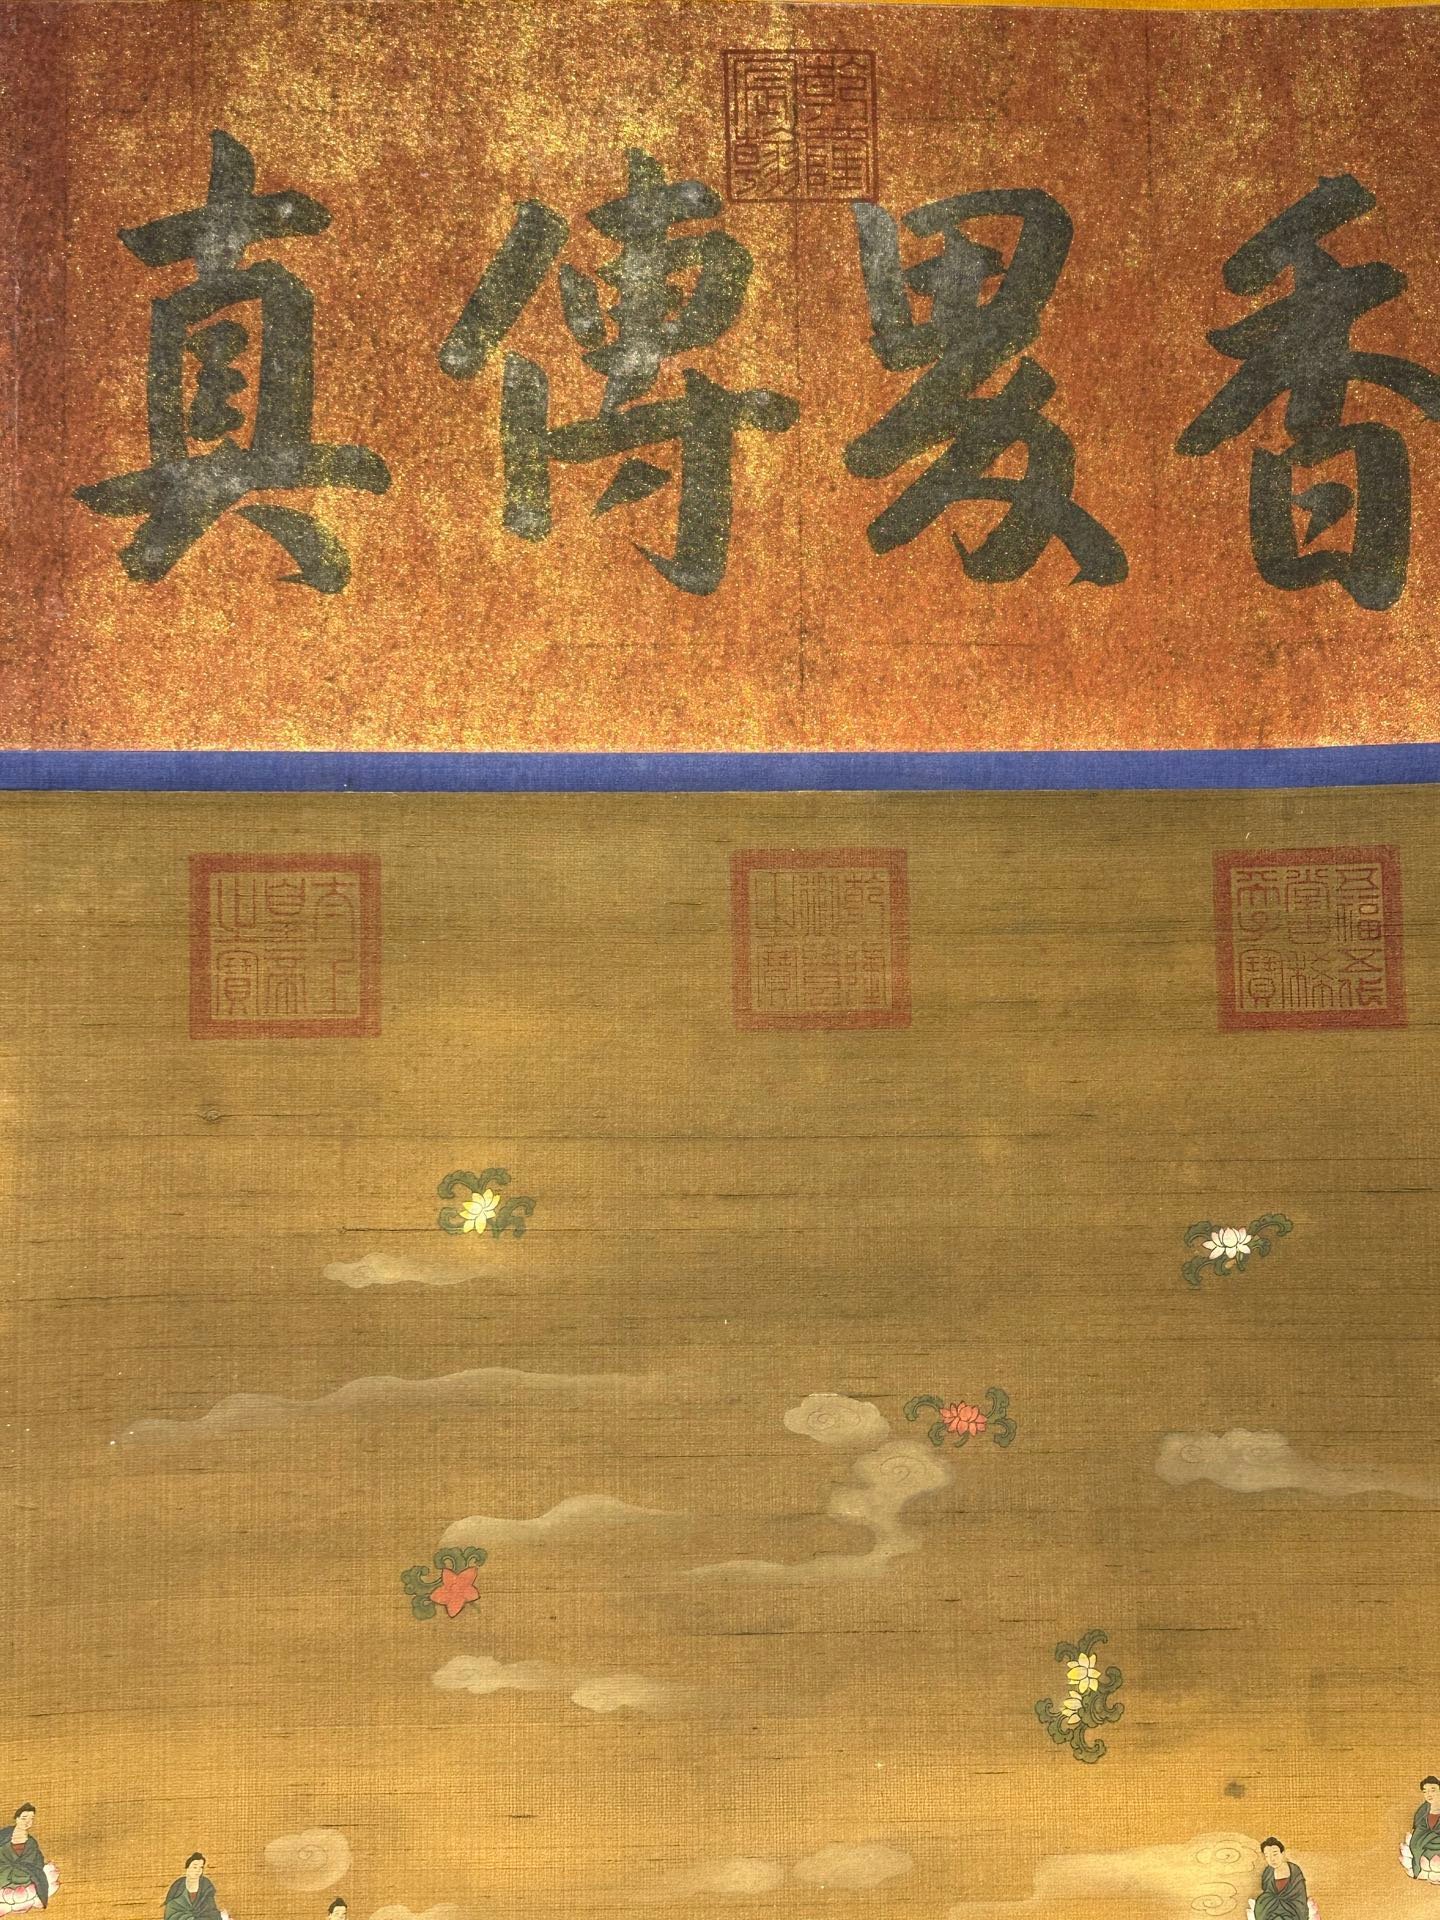 乾隆宸翰
香畟傳真
五福五代堂古稀天子寶
乾隆御覽之寶
太上皇帝之寶